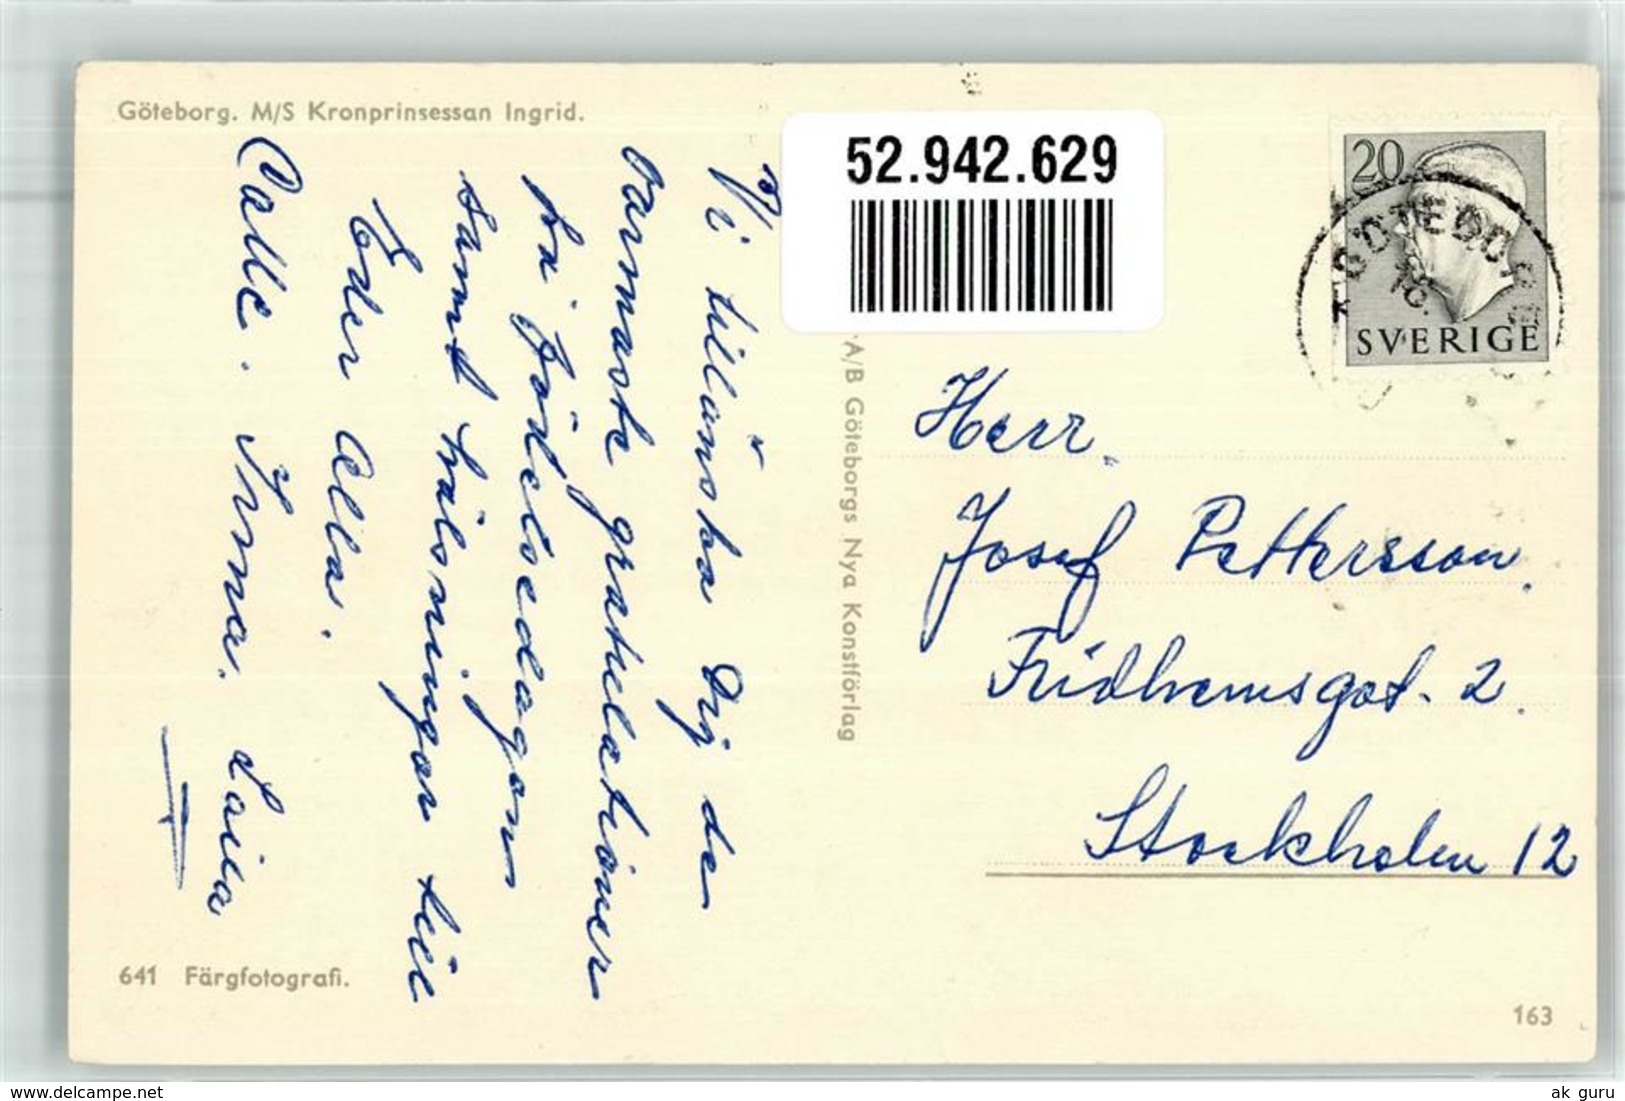 Göteborg. M/S Kronprinsessan Ingrid.
52.942.629
20
SVERIGE
GÖTEBORG
Vi tillönska Dig de
varmaste gratulationer
på födelsedagen
samt hälsningar till
Eder Alla.
Calle. Irma. Laila
A/B Göteborgs Nya Konstförlag
Herr.
Josef Pettersson.
Fridhemsgat. 2.
Stockholm 12
641 Färgfotografi.
163
ak guru